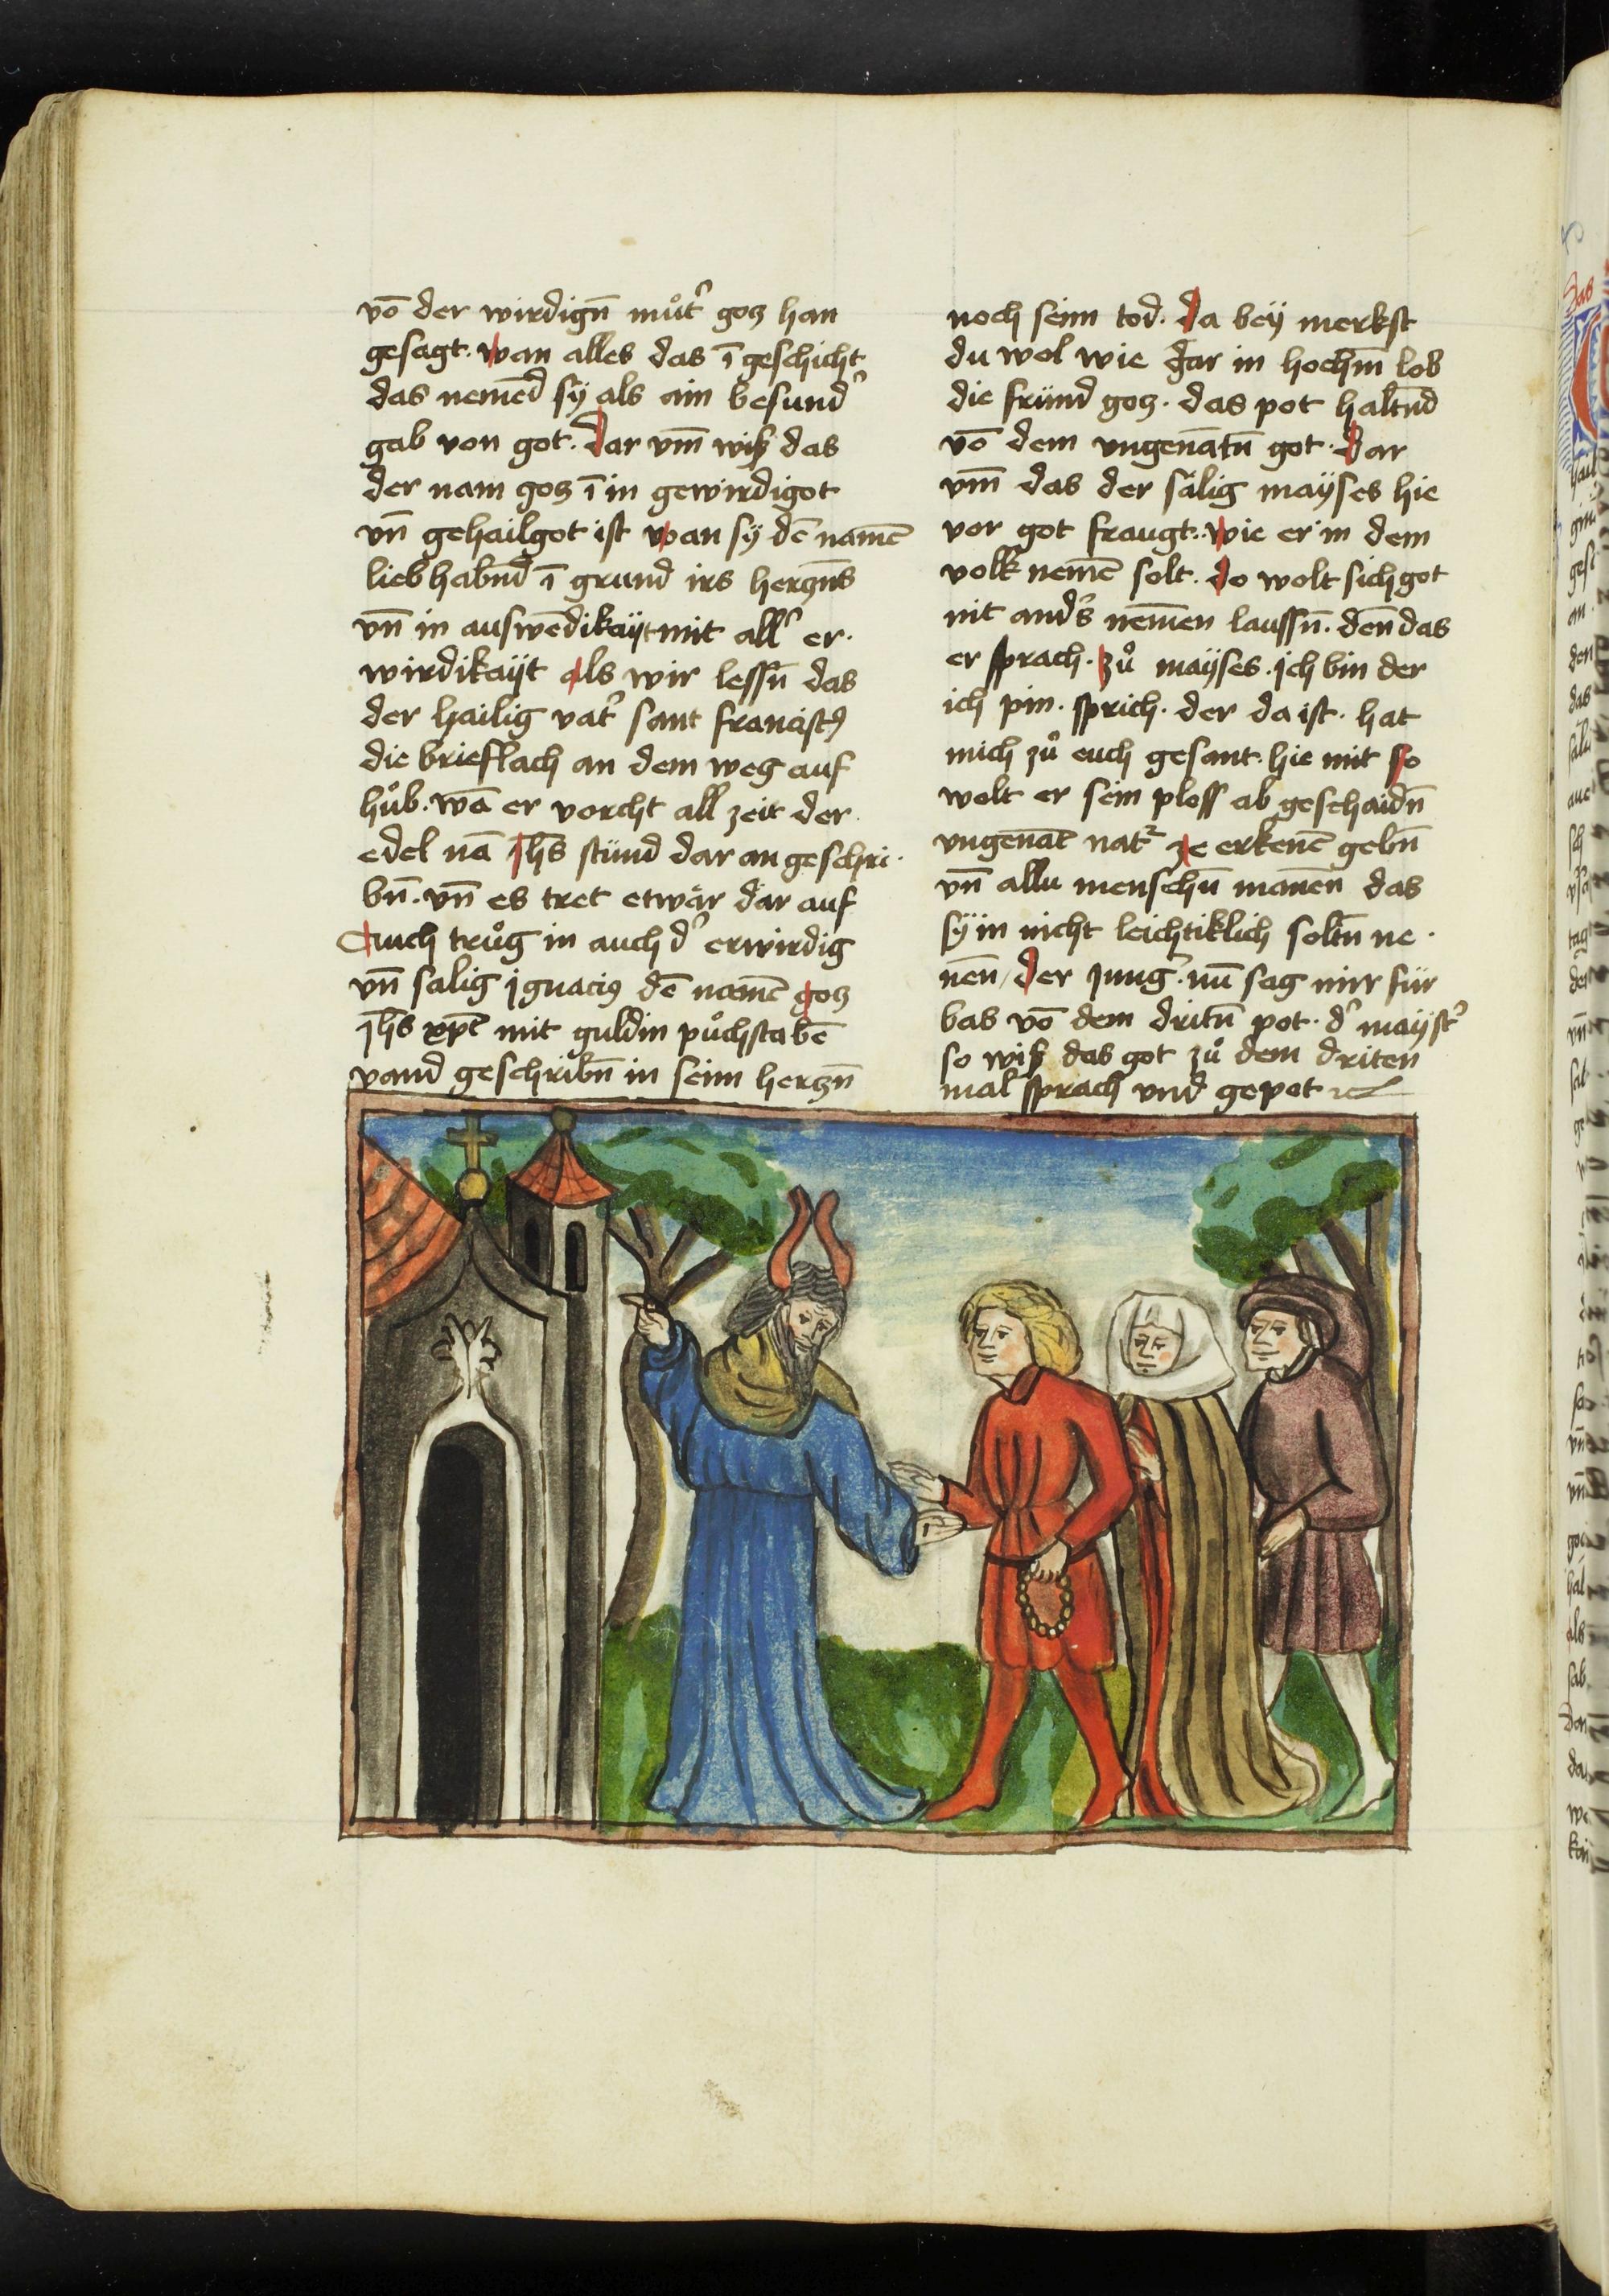 vō der wirdign̄ můt᷑ goʒ han
gesagt. wan alles das ī geschicht
das nemēd sy als ain besund᷑
gab von got. Dar vm̄ wiß das
der nam goʒ ī in gewirdigot
vn̄ gehailgot ist wan sy dē namē
lieb habn̄d ī grund irs herczn̄s
vn̄ in auswēdikaÿt mit all᷑ er.
wirdikaÿt als wir lessn̄ das
der hailig vat᷑ sant franciscꝰ
die brieflach an dem weg auf
hůb. wā er vorcht all zeit der
edel nā jhs̄ stünd dar an geschri.
bn̄. vn̄ es tret etwär dar auf
Auch trůg in auch d᷑ erwirdig
vn̄ salig jgnaciꝰ dē namē goʒ
jhs̄ xp̄t mit guldin půchstabē
vand geschribn̄ in seim herczn̄
noch seim tod. Da beÿ merkst
du wol wie gar in hochm̄ lob
die fründ goʒ. das pot haltn̄d
vō dem vngenātn̄ got. Dar
vm̄ das der sälig maÿses hie
vor got fraugt. wie er in dem
volk nemē solt. do wolt sich got
nit and᷑s nem̄en laussn̄. den̄ das
er sprach. zů maÿses. ich bin der
ich pin. sprich. der da ist. hat
mich zů euch gesant. hie mit so
wolt er sein ploss ab geschaidn̄
vngenāt nat᷑ ze erkenē gebn̄
vn̄ allu menschn̄ manen das
sÿ in nicht leichtiklich soltn̄ ne.
nen̄ / der jung᷑. nū sag mir für
bas vō dem dritn̄ pot. d᷑ maÿst᷑
so wiß das got zů dem driten
mal sprach vnd gepot ꝛc